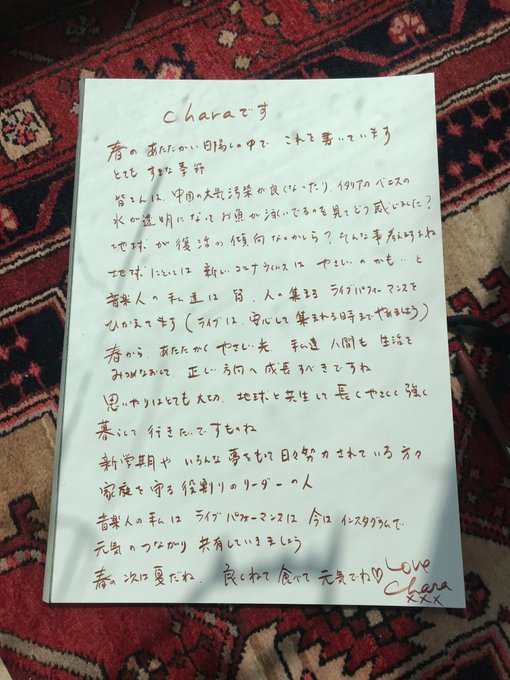 Charaです
春さんの あたたかい日陽しの中で これを書いています
とても すきな季節
皆さんは、中国の大気汚染が良くなったり、イタリアの ベニスの
水が透明になって お魚が泳いでるのを見てどう感じました?
地球が復活の傾向なのかしら? そんな事考えますよね
地球にとっては 新しいコロナウィルスは やさしいのかも… と
音楽人の私達は 皆、人の集まる ライブパフォーマンスを
ひかえてます (ライブは、安心して集まれる日までやめましょう)
春から あたたかく やさしい光 私達 人間も 生活を
みつめなおして 正しい方向へ 成長すべきですね
思いやりはとても大切、地球と共生して 長くやさしく 強く
暮らして行きたいですものね
新学期や いろんな夢をもって日々努力されている方々
家庭を守る役割りのリーダーの人
音楽人の私は ライブパフォーマンスは 今は インスタグラムで
元気のつながり 共有していきましょう
春の次は夏だね、 良くねて 食べて 元気でね♡
Love
Chara
xxx